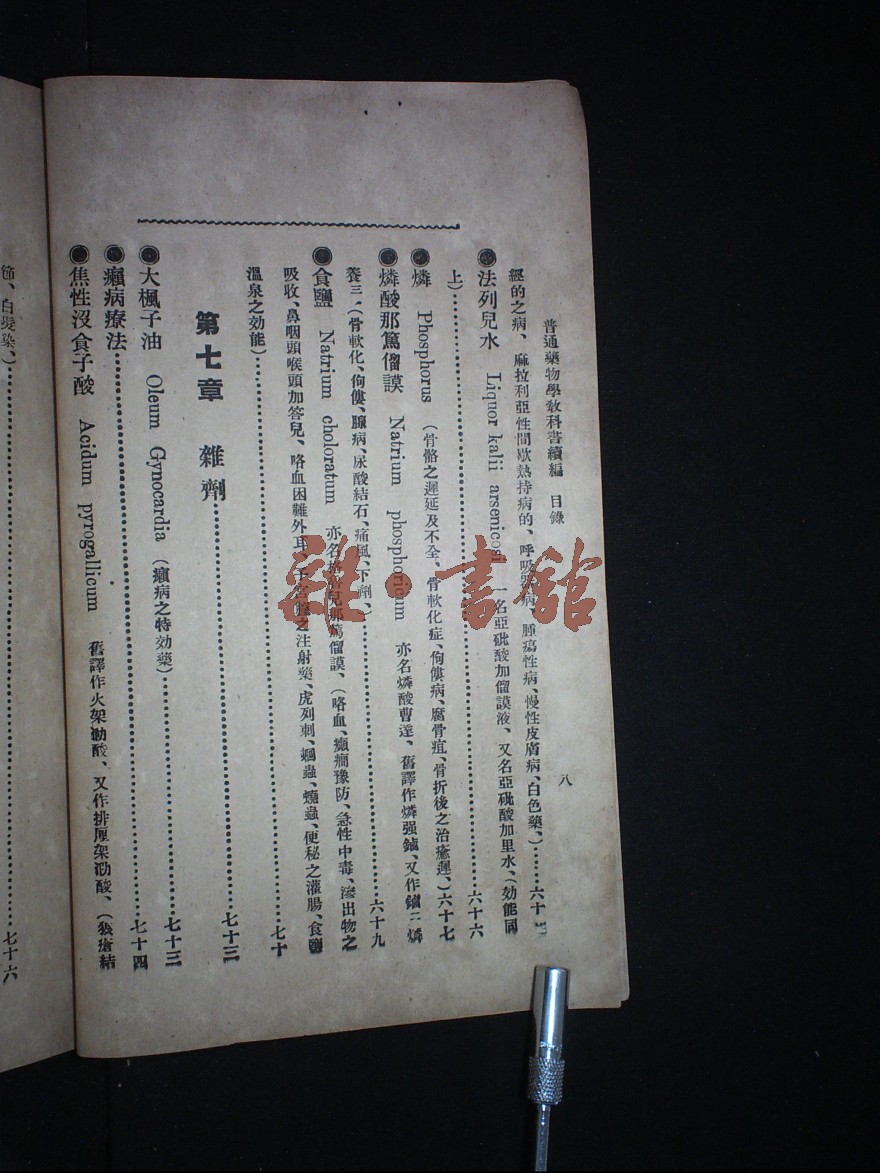 普通藥物學教科書續編 目錄 八
經的之病、麻拉利亞性間歇熱持病的、呼吸器病、腫瘍性病、慢性皮膚病、白色藥、)⋯⋯六十
法列兒水 Liquor kalii arsenicosi 一名亞砒酸加僧謨液、又名亞砒酸加里水、(効能同
上)⋯⋯六十六
燐 Phosphorus (骨骼之遲延及不全、骨軟化症、佝僂病、腐骨疽、骨折後之治癒遲、)六十七
燐酸那篤僧謨 Natrium phosphoricum 亦名燐酸曹達、舊譯作燐强鏀、又作鏀二燐
養三、(骨軟化、佝僂、腺病、尿酸結石、痛風、下劑、)⋯⋯六十九
食鹽 Natrium choloratum 亦名格魯兒那篤僧謨、(咯血、癲癇豫防、急性中毒、滲出物之
吸收、鼻咽頭喉頭加答兒、咯血困難外耳、子宮之注射藥、虎列刺、蛔蟲、蟯蟲、便秘之灌腸、食鹽
溫泉之効能)⋯⋯七十
第七章 雜劑⋯⋯七十三
大楓子油 Oleum Gynocardia (癩病之特効藥)⋯⋯七十三
癩病療法⋯⋯七十四
焦性沒食子酸 Acidum pyrogallicum 舊譯作火架泐酸、又作排厘架泐酸、(狼瘡結
節、白髮染、)⋯⋯七十六
雜·書館